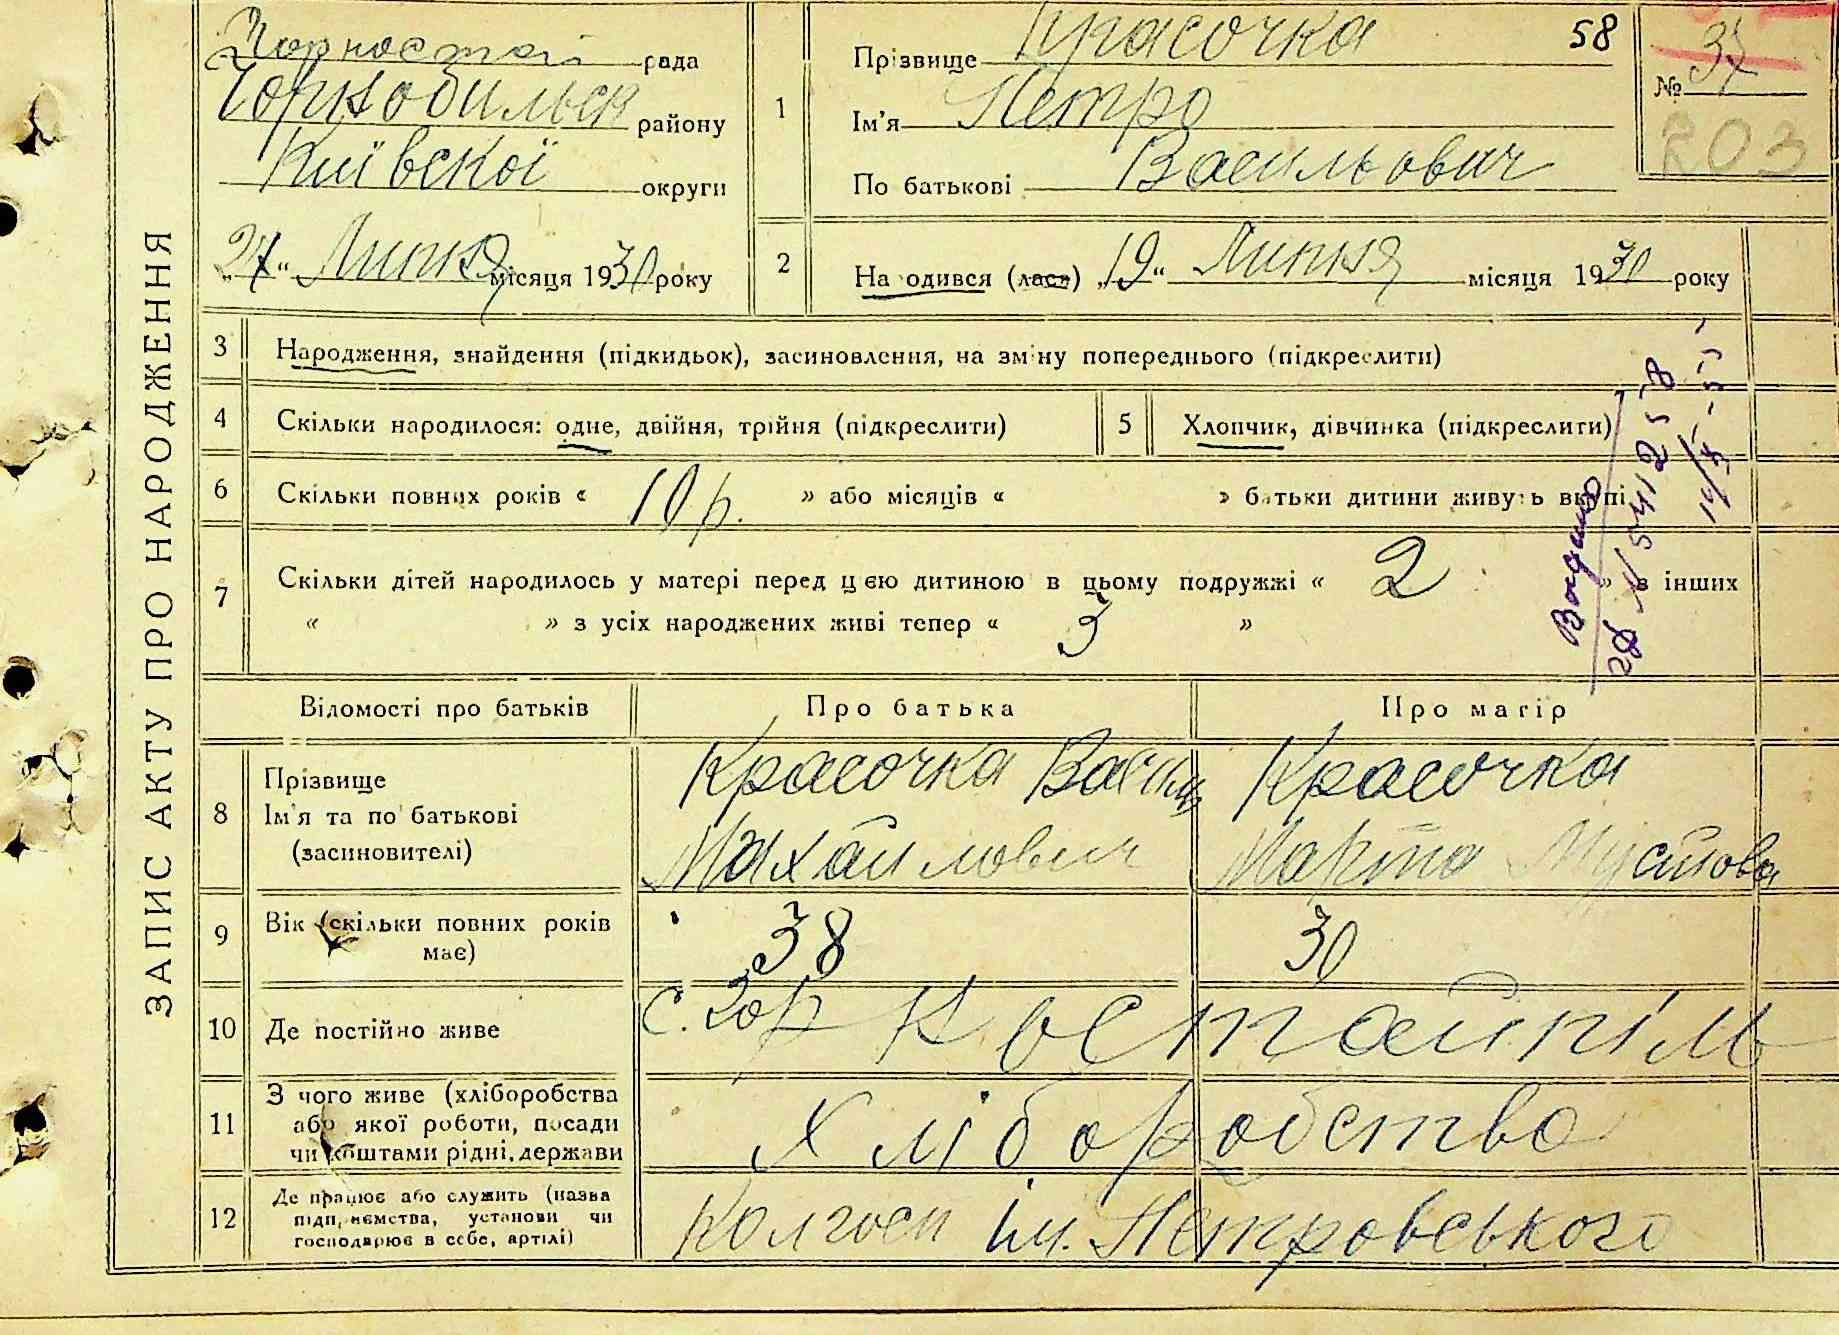 ЗАПИС АКТУ ПРО НАРОДЖЕННЯ
рада
Чорнобильск району
Київскої округи
„27“ Липня місяця 1930 року
1
Прізвище Красочка
Ім’я Петро
По батькові Васильович
58
№ 37
203
2
На одився (лася) „19“ Липня місяця 1930 року
3
Народження, знайдення (підкидьок), засиновлення, на зміну попереднього (підкреслити)
4
Скільки народилося: одне, двійня, трійня (підкреслити)
5
Хлопчик, дівчинка (підкреслити)
6
Скільки повних років « 10 р. » або місяців « » батьки дитини живуть вкупі
7
Скільки дітей народилось у матері перед цією дитиною в цьому подружжі « 2 » в інших
« » з усіх народжених живі тепер « 3 »
Відомості про батьків
Про батька
Про матір
8
Прізвище
Ім’я та по батькові
(засиновителі)
Красочка
Михайлович
Красочка
Марта
9
Вік (скільки повних років
має)
38
30
10
Де постійно живе
с.
11
З чого живе (хліборобства
або якої роботи, посади
чи коштами рідні, держави
Хліборобство
12
Де працює або служить (назва
підприємства, установи чи
господарює в себе, артілі)
Колгосп Ім. Петровського